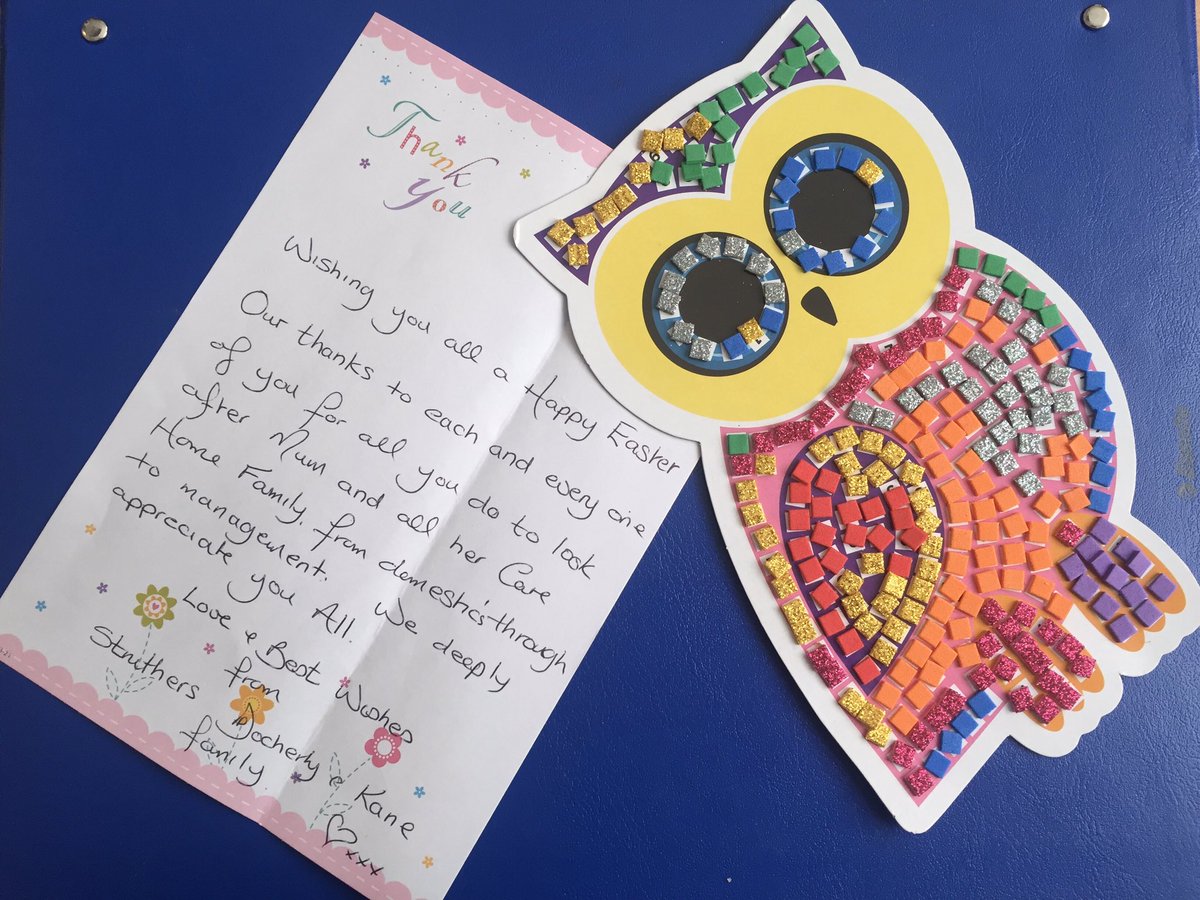 Thank
You
Wishing you all a Happy Easter
Our thanks to each and every one
of you for all you do to look
after Mum and all her Care
Home Family, from domestic's through
to management. We deeply
appreciate you All.
Love & Best Wishes
from
Struthers Docherty & Kane
family
xxx